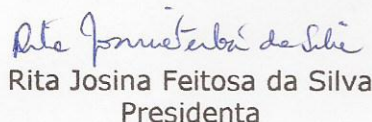 Rita Josina Feitosa da Silva
Rita Josina Feitosa da Silva
Presidenta